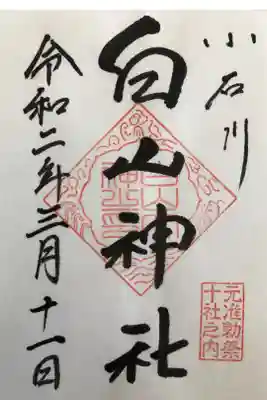 小石川
白山神社
令和二年三月十一日
元准勅祭
十社之内